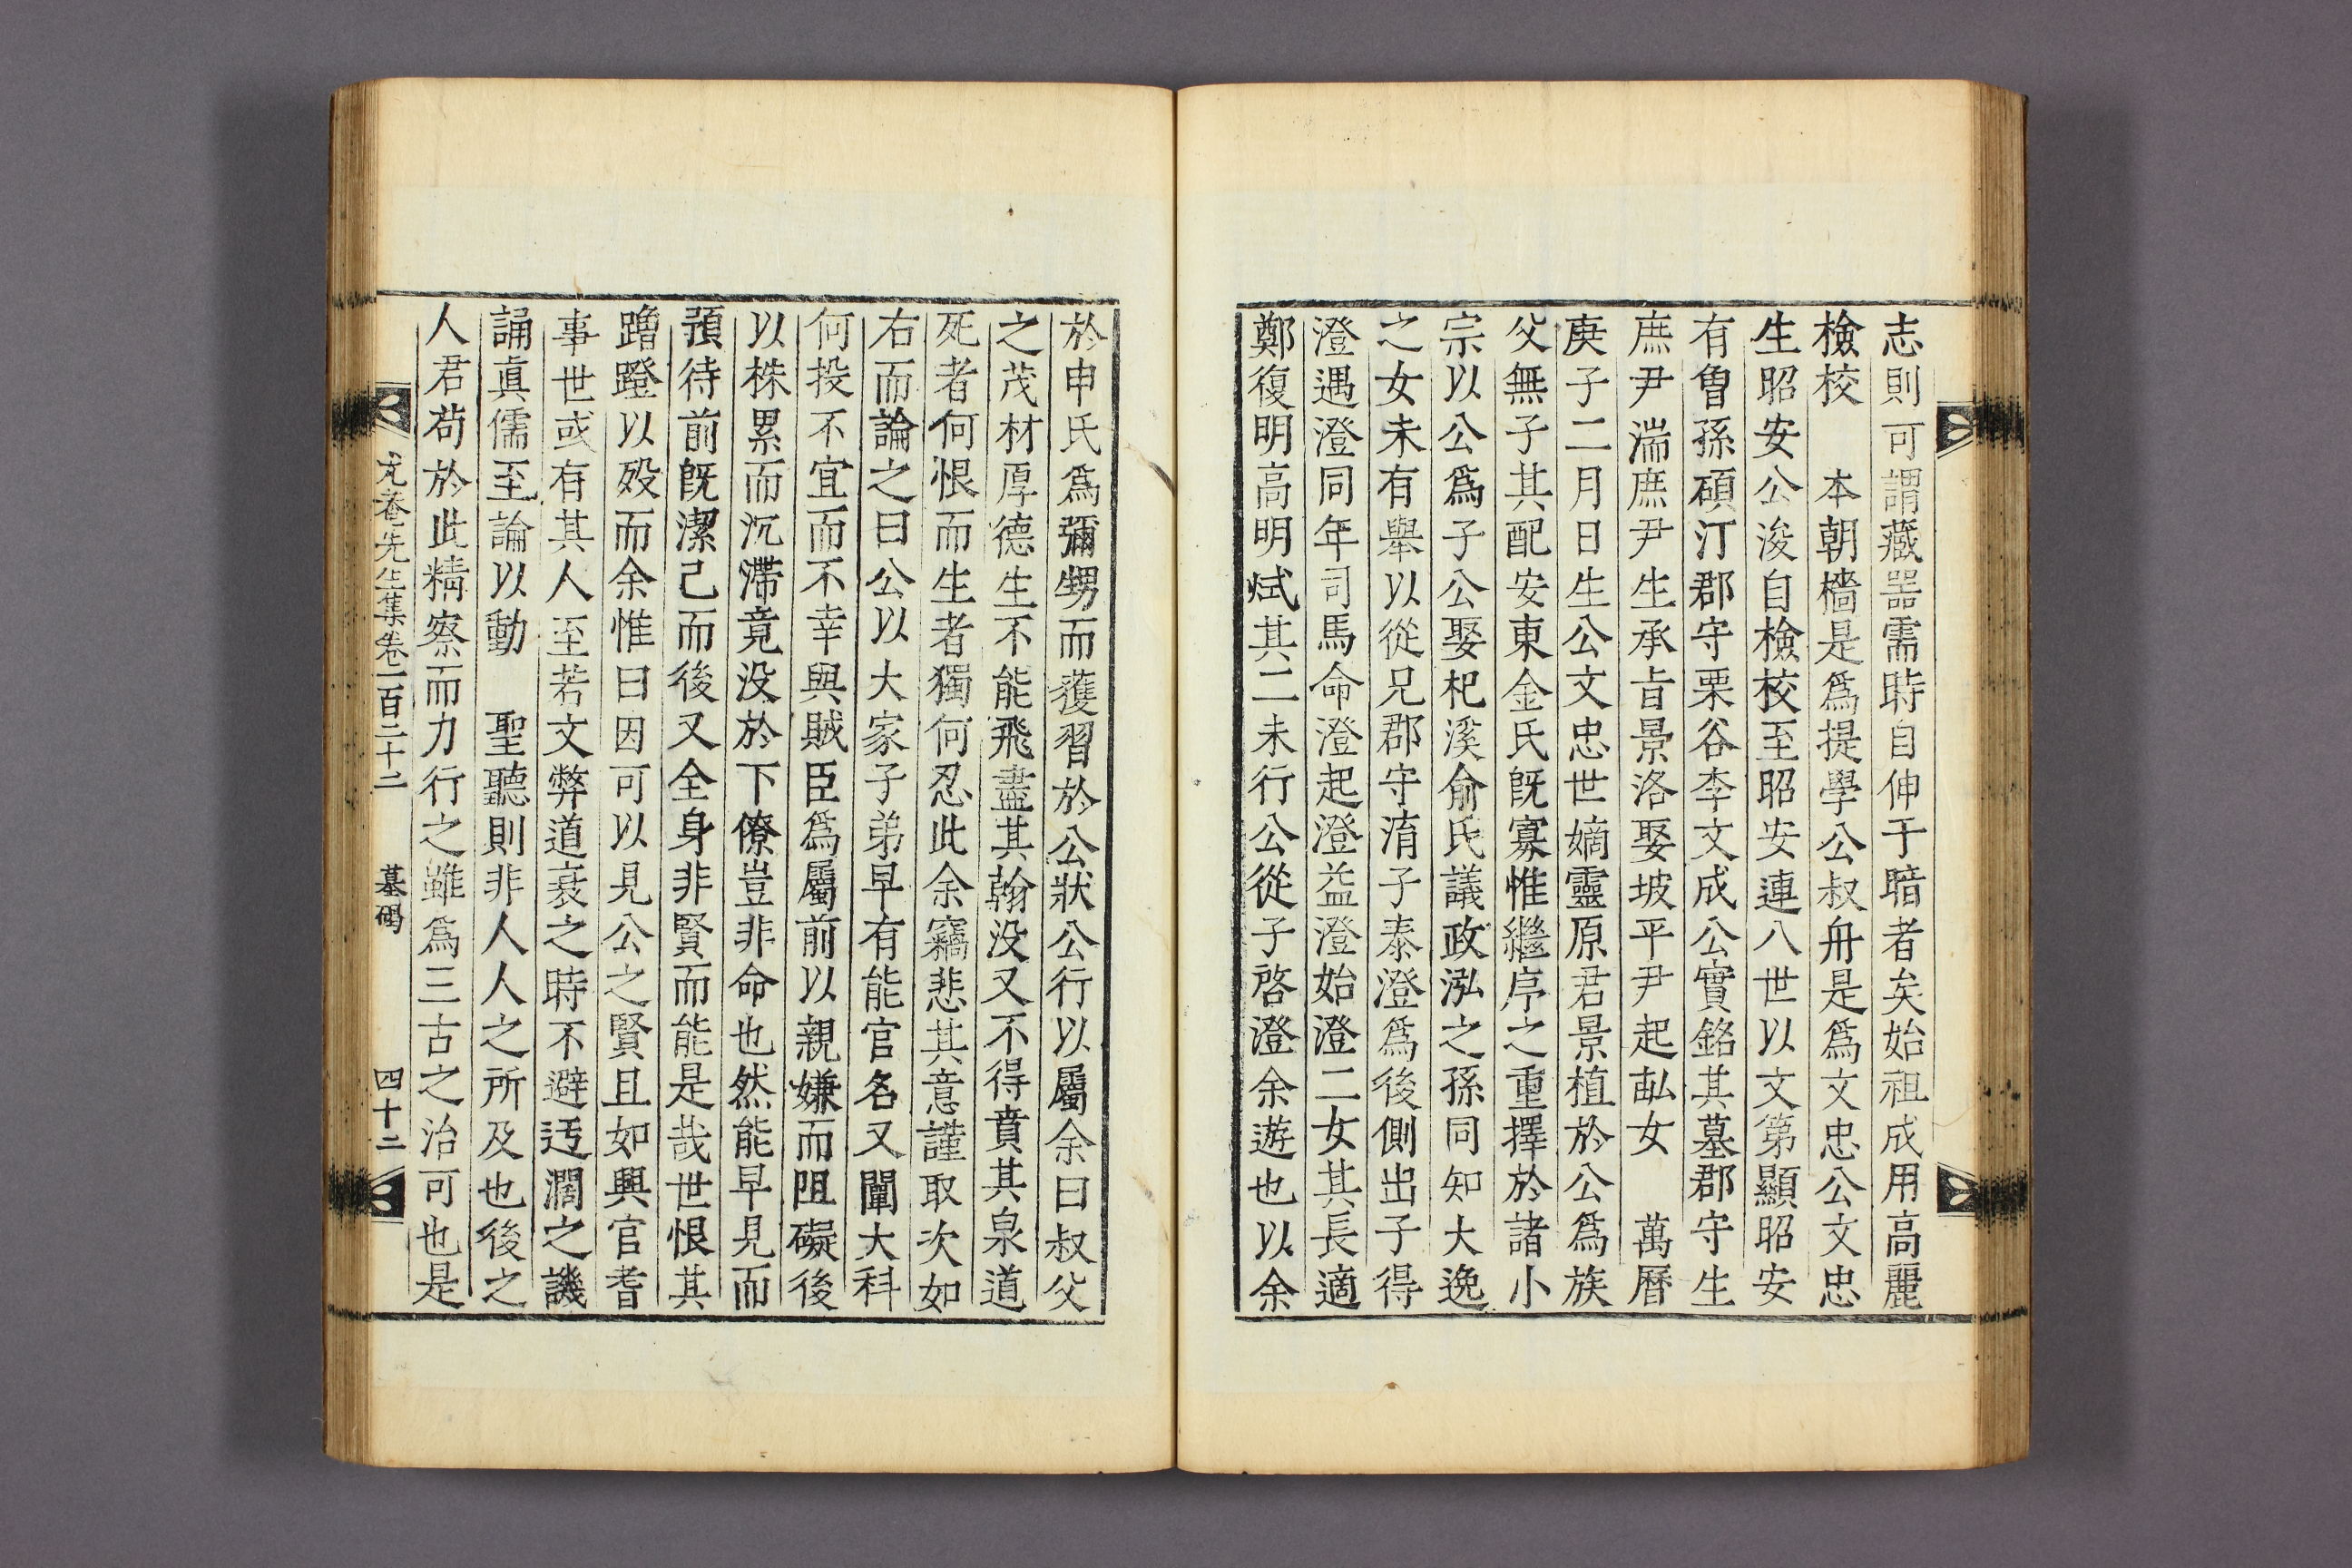 志則可謂藏器需時自伸于暗者矣始祖成用高麗
檢校　本朝檣是爲提學公叔舟是爲文忠公文忠
生昭安公浚自檢校至昭安連八世以文第顯昭安
有曾孫碩汀郡守栗谷李文成公實銘其墓郡守生
庶尹湍庶尹生承旨景洛娶坡平尹起畝女　萬曆
庚子二月日生公文忠世嫡靈原君景植於公爲族
父無子其配安東金氏旣寡惟繼序之重擇於諸小
宗以公爲子公娶杞溪俞氏議政泓之孫同知大逸
之女未有擧以從兄郡守淯子泰澄爲後側出子得
澄遇澄同年司馬命澄起澄益澄始澄二女其長適
鄭復明高明烒其二未行公從子啓澄余遊也以余
於申氏爲彌甥而蒦習於公狀公行以屬余曰叔父
之茂材厚德生不能飛盡其翰没又不得賁其泉道
死者何恨而生者獨何忍此余竊悲其意謹取次如
右而論之曰公以大家子弟早有能官名又闡大科
何投不宜而不幸與賊臣爲屬前以親嫌而阻礙後
以株累而沉滯竟没於下僚豈非命也然能早見而
預待前旣潔己而後又全身非賢而能是哉世恨其
蹭蹬以殁而余惟曰因可以見公之賢且如興官耆
事世或有其人至若文弊道衰之時不避迃濶之譏
誦眞儒至論以動　聖聽則非人人之所及也後之
人君苟於此精察而力行之雖爲三古之治可也是
尤菴先生集卷一百二十二　墓碣　四十二